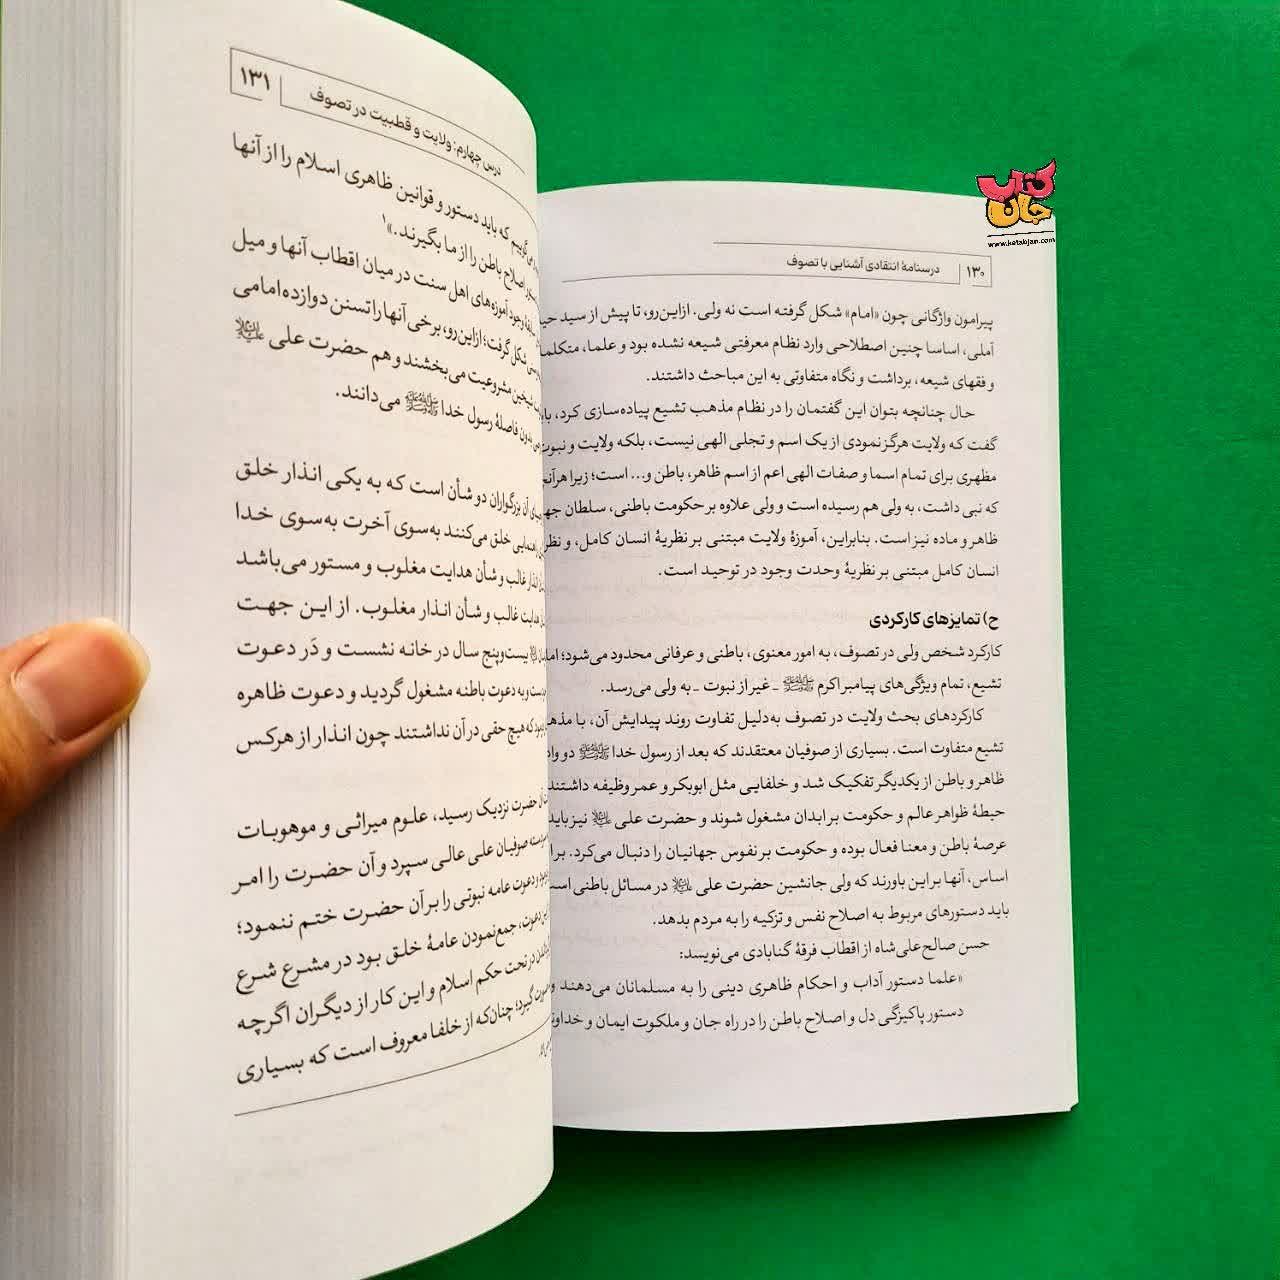 کتاب
جان
www.ketabjan.com
۱۳۰
درسنامهٔ انتقادی آشنایی با تصوف
پیرامون واژگانی چون «امام» شکل گرفته است نه ولی. ازاین‌رو، تا پیش از سید
آملی، اساسا چنین اصطلاحی وارد نظام معرفتی شیعه نشده بود و علما،
و فقهای شیعه، برداشت و نگاه متفاوتی به این مباحث داشتند.
حال چنانچه بتوان این گفتمان را در نظام مذهب تشیع پیاده‌سازی کرد،
گفت که ولایت هرگز نمودی از یک اسم و تجلی الهی نیست، بلکه ولایت و
مظهری برای تمام اسما و صفات الهی اعم از اسم ظاهر، باطن و... است؛ زیرا
که نبی داشت، به ولی هم رسیده است و ولی علاوه بر حکومت باطنی، سلطان
ظاهر و ماده نیز است. بنابراین، آموزهٔ ولایت مبتنی بر نظریهٔ انسان کامل، و
انسان کامل مبتنی بر نظریهٔ وحدت وجود در توحید است.
ح) تمایزهای کارکردی
کارکرد شخص ولی در تصوف، به امور معنوی، باطنی و عرفانی محدود می‌شود؛
تشیع، تمام ویژگی‌های پیامبر اکرم ﷺ ـ غیر از نبوت ـ به ولی می‌رسد.
کارکردهای بحث ولایت در تصوف به‌دلیل تفاوت روند پیدایش آن، با
تشیع متفاوت است. بسیاری از صوفیان معتقدند که بعد از رسول خدا ﷺ دو
ظاهر و باطن از یکدیگر تفکیک شد و خلفایی مثل ابوبکر و عمر وظیفه داشتند
حیطهٔ ظواهر عالم و حکومت بر ابدان مشغول شوند و حضرت علی علیه‌السلام نیز باید
عرصهٔ باطن و معنا فعال بوده و حکومت بر نفوس جهانیان را دنبال می‌کرد.
اساس، آنها بر این باورند که ولی جانشین حضرت علی علیه‌السلام در مسائل باطنی
باید دستورهای مربوط به اصلاح نفس و تزکیه را به مردم بدهد.
حسن صالح‌علی‌شاه از اقطاب فرقهٔ گنابادی می‌نویسد:
«علما دستور آداب و احکام ظاهری دینی را به مسلمانان می‌دهند و
دستور پاکیزگی دل و اصلاح باطن را در راه جان و ملکوت ایمان و
درس چهارم: ولایت و قطبیت در تصوف
۱۳۱
که باید دستور و قوانین ظاهری اسلام را از آنها
اصلاح باطن را از ما بگیرند.»۱
وجود آموزه‌های اهل سنت در میان اقطاب آنها و میل
شکل گرفت؛ ازاین‌رو، برخی آنها را تسنن دوازده‌امامی
مشروعیت می‌بخشند و هم حضرت علی علیه‌السلام
بدون فاصلهٔ رسول خدا ﷺ می‌دانند.
آن بزرگواران دو شأن است که به یکی انذار خلق
راهنمایی خلق می‌کنند به‌سوی آخرت به‌سوی خدا
انذار غالب و شأن هدایت مغلوب و مستور می‌باشد
هدایت غالب و شأن انذار مغلوب. از این جهت
بیست‌وپنج سال در خانه نشست و دَر دعوت
و به دعوت باطنه مشغول گردید و دعوت ظاهره
که هیچ حقی در آن نداشتند چون انذار از هرکس
آن حضرت نزدیک رسید، علوم میراثی و موهوبات
صوفیان علی عالی سپرد و آن حضرت را امر
و دعوت عامه نبوتی را بر آن حضرت ختم ننمود؛
دعوت، جمع‌نمودن عامهٔ خلق بود در مشرع شرع
در تحت حکم اسلام و این کار از دیگران اگرچه
گیرد؛ چنان‌که از خلفا معروف است که بسیاری